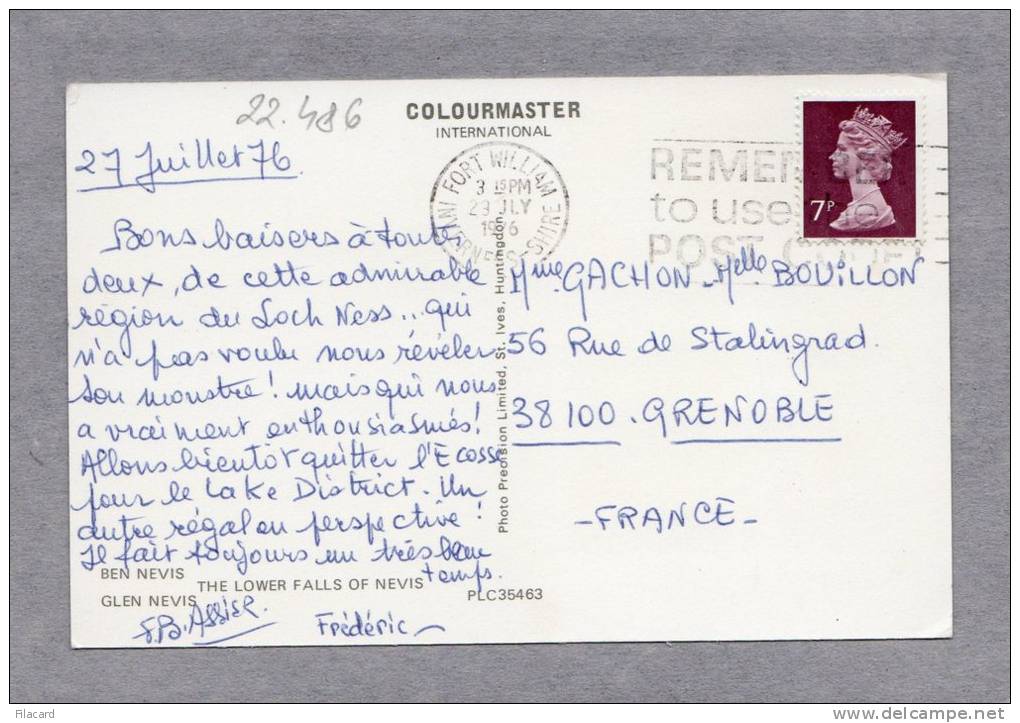 22.486
COLOURMASTER
INTERNATIONAL
27 Juillet 76
FORT WILLIAM
INVERNESS-SHIRE
3 15 PM
29 JLY
1976
REMEMBER
to use the
POST CODE
7P
Bons baisers à toute
deux, de cette admirable
région du Loch Ness... qui
n'a pas voulu nous révéler
son monstre! mais qui nous
a vraiment enthousiasmés!
Allons bientôt quitter l'Ecosse
pour le Lake District. Un
autre régal en perspective!
Il fait toujours un très beau
temps.
Assier.
Frédéric
Photo Precision Limited, St. Ives, Huntingdon
Mme GACHON - Melle BOUILLON
56 Rue de Stalingrad.
38100. GRENOBLE
- FRANCE -
BEN NEVIS
THE LOWER FALLS OF NEVIS
GLEN NEVIS
PLC35463
Filacard
www.delcampe.net